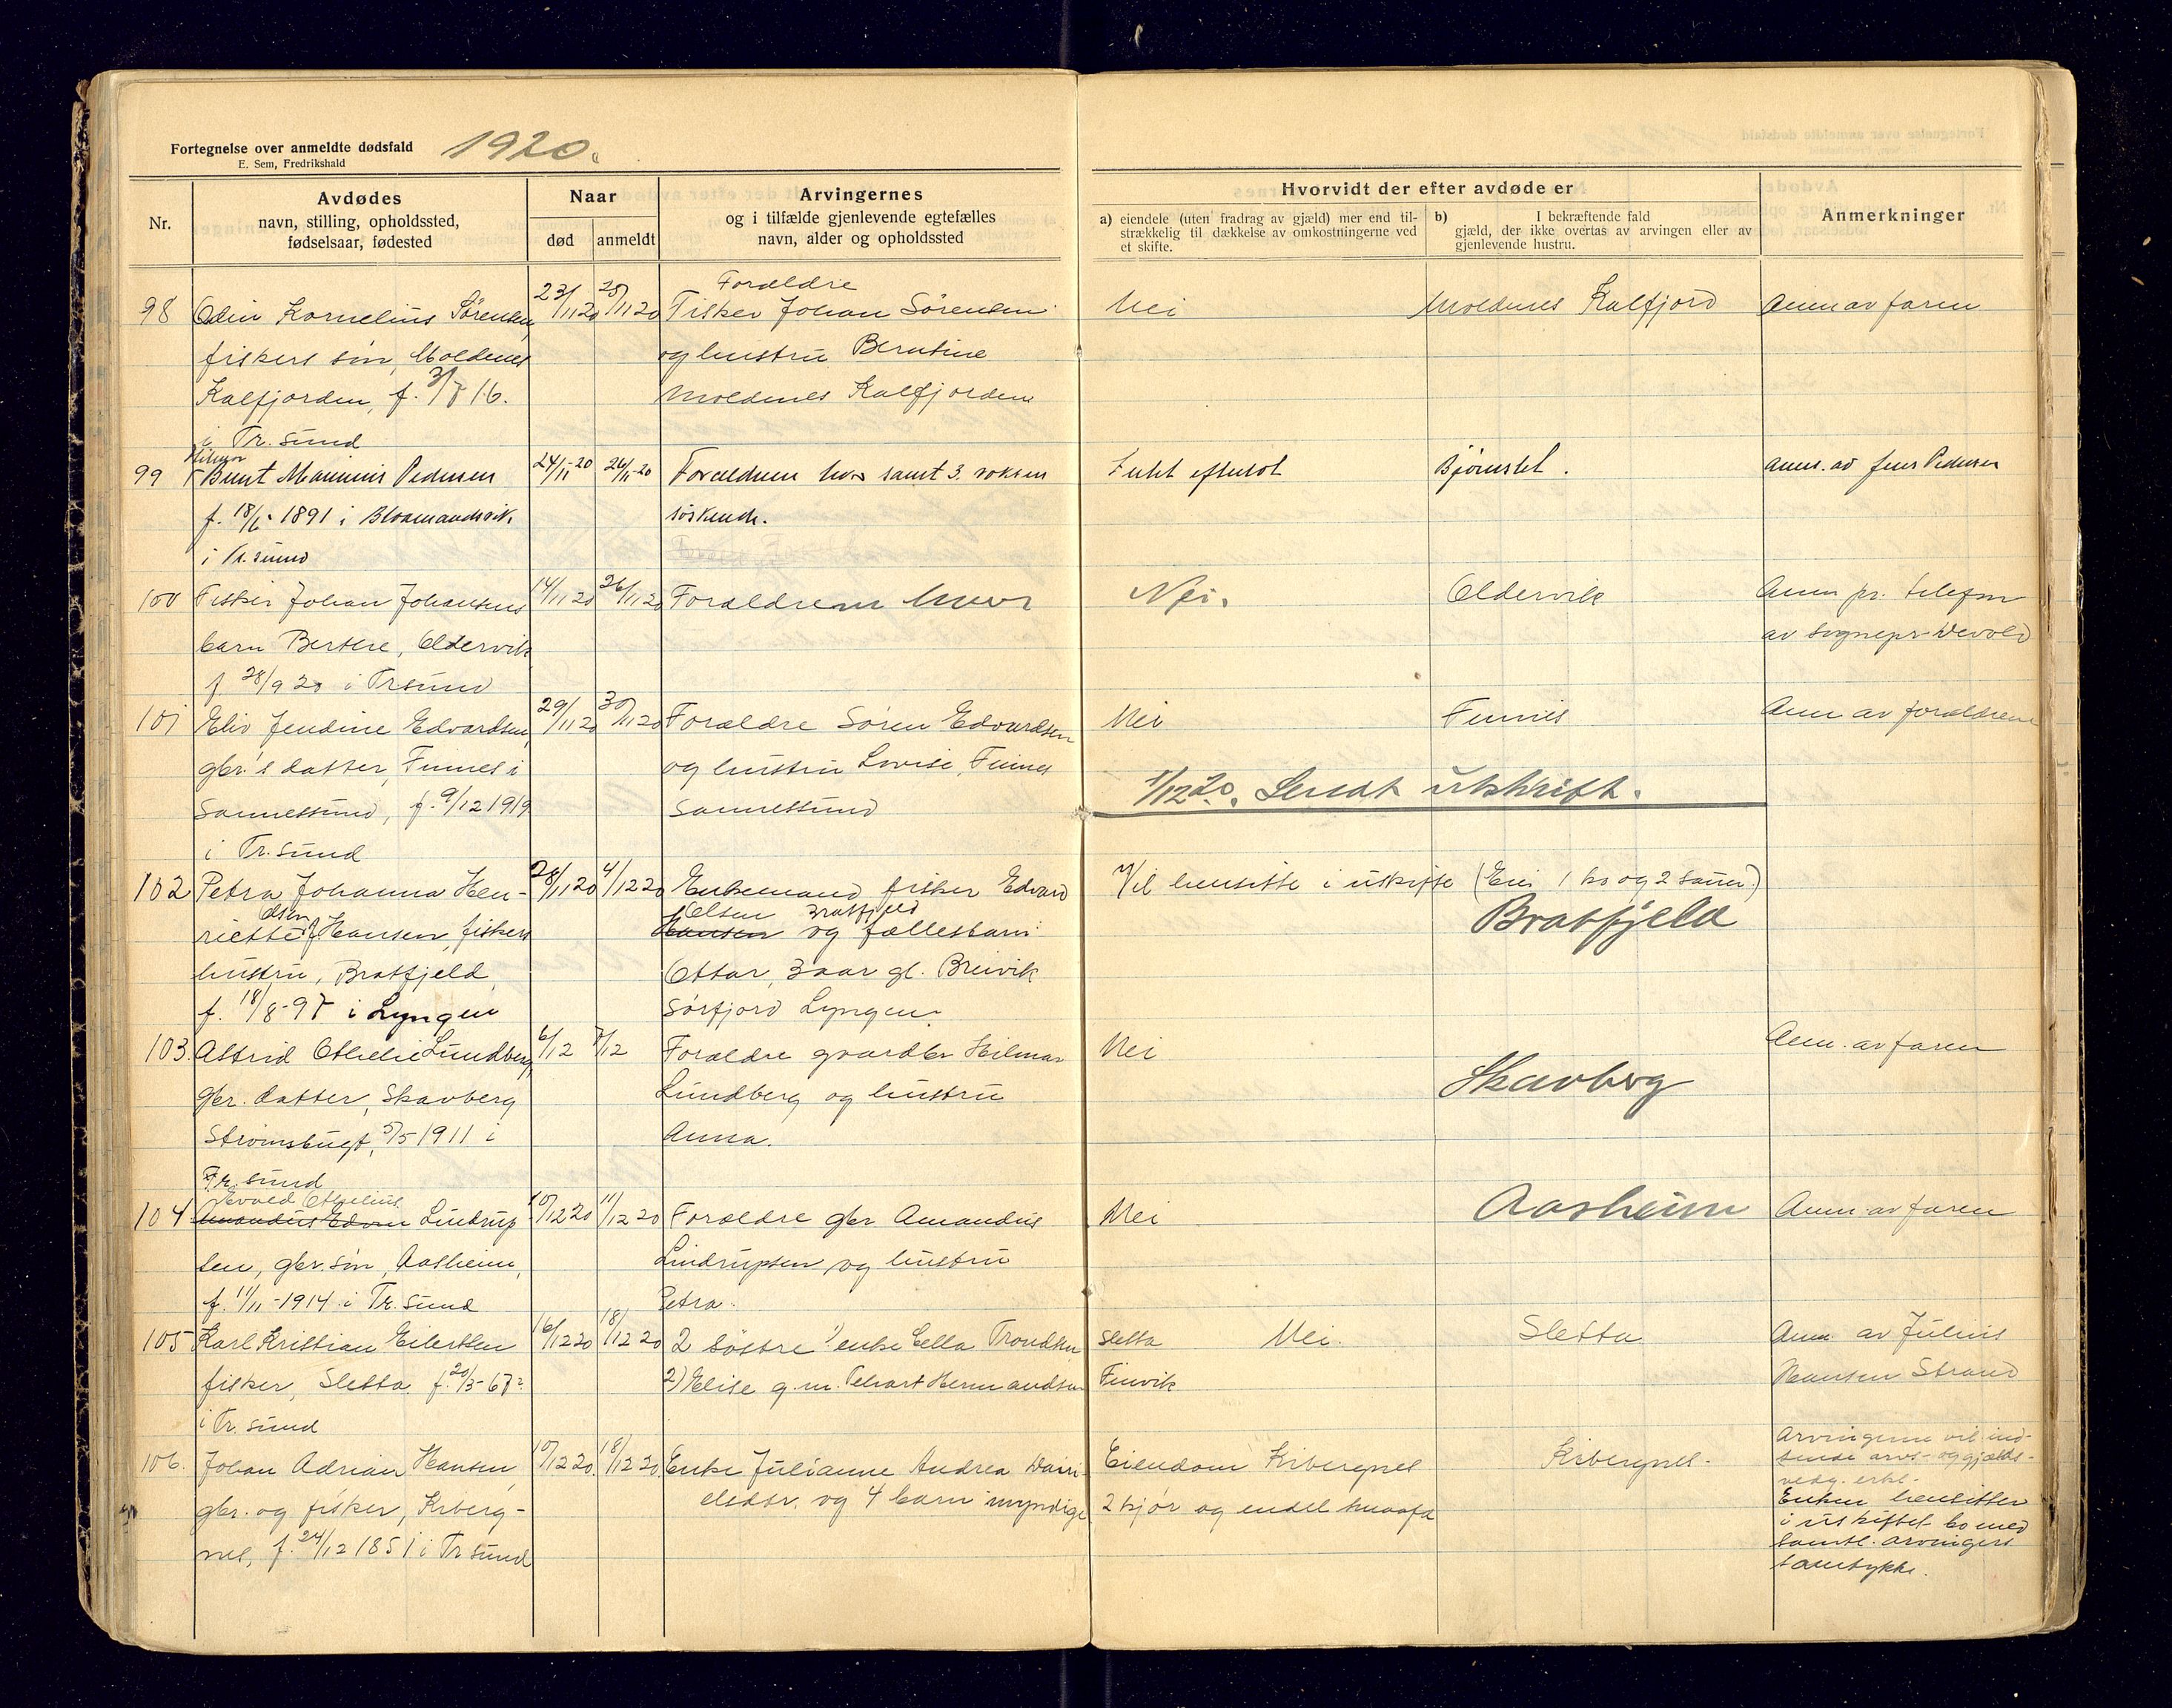 Fortegnelse over anmeldte dødsfald 1920.
E. Sem, Fredrikshald
Nr.
Avdødes
navn, stilling, opholdssted,
fødselsaar, fødested
Naar
død
anmeldt
Arvingernes
og i tilfælde gjenlevende egtefælles
navn, alder og opholdssted
Hvorvidt der efter avdøde er
a) eiendele (uten fradrag av gjæld) mer end til-
strækkelig til dækkelse av omkostningerne ved
et skifte.
b) I bekræftende fald
gjæld, der ikke overtas av arvingen eller av
gjenlevende hustru.
Anmerkninger
98
Odin Kornelius Sørensen,
fiskers søn, Moldenes
Kalfjorden, f. 3/7 16.
i Tr.sund
23/11 20
25/11 20
Forældre
Fisker Johan Sørensen
og hustru Berntine
Moldenes Kalfjorden
Nei
Moldenes Kalfjord
Anm av faren
99
Hilmar
Bernt Pedersen
f. 18/6-1891 i
i Tr.sund
24/11-20
26/11-20
Forældrene hvor samt 3 voksne
søskende.
Intet efterlot
anm. av Jens Pedersen
100
Fisker Johan Johansens
barn Bertine, Oldervik
f. 28/9 20 i Tr.sund
14/11 20
26/11 20
Forældrene hvor
Nei.
Oldervik
Anm pr. telefon
av sognepr. Devold
101
Eliv Jendine Edvardsen,
gbr.'s datter, Finnes i
Sannessund, f. 9/12 1919
i Tr.sund
29/11 20
30/11 20
Forældre Søren Edvardsen
og hustru Lovise, Finnes
Sannessund
Nei
Finnes
Anm av forældrene
1/12 20. Sendt utskrift.
102
Petra Johanna Hen-
Olsen
riette Hansen, fiskers
hustru, Bratfjeld,
f. 18/8-97 i Lyngen
28/11 20
4/12 20
Enkemand fisker Edvard
Olsen Bratfjeld
Hansen og fællesbarn
Ottar, 3 aar gl. Breivik
Sørfjord Lyngen.
Vil hensitte i uskifte (Eier 1 ko og 2 sauer)
Bratfjeld
103.
Astrid Othelie Lundberg,
gbr. datter, Skavberg
Strømsbugt, 5/5 1911 i
Tr.sund
6/12
7/12
Forældre gaardbr Hilmar
Lundberg og hustru
Anna.
Nei
Skavberg
Anm. av faren
104
Evald Othelius
Amandus Edvin Lindrup
sen, gbr. søn, Aasheim,
f. 11/11-1914 i Tr.sund
10/12 20
11/12 20
Forældre gbr Amandus
Lindrupsen og hustru
Petra.
Nei
Aasheim
Anm. av faren
105
Karl Kristian Eilertsen
fisker, Sletta f. 20/3-67
i Tr.sund
16/12 20
18/12 20
2 søstre 1) enke Trondsen Sletta
2) Elise g.m. Hermandsen Finvik
Nei.
Sletta
Anm. av Julius
Hansen Strand
106.
Johan Adrian Hansen,
gbr. og fisker, Krberg-
nes, f. 24/12 1851 i Tr.sund
10/12 20.
18/12 20
Enke Julianne Andrea Dani-
elsdtr. og 4 barn myndige
Eiendom Krbergnes
2 kjør og endel smaafe
Krbergnes.
Arvingerne vil ind-
sende arvs- og gjælds-
vedg. erkl.
Enken hensitter
i uskiftet bo med
samtl. arvingers
samtykke.